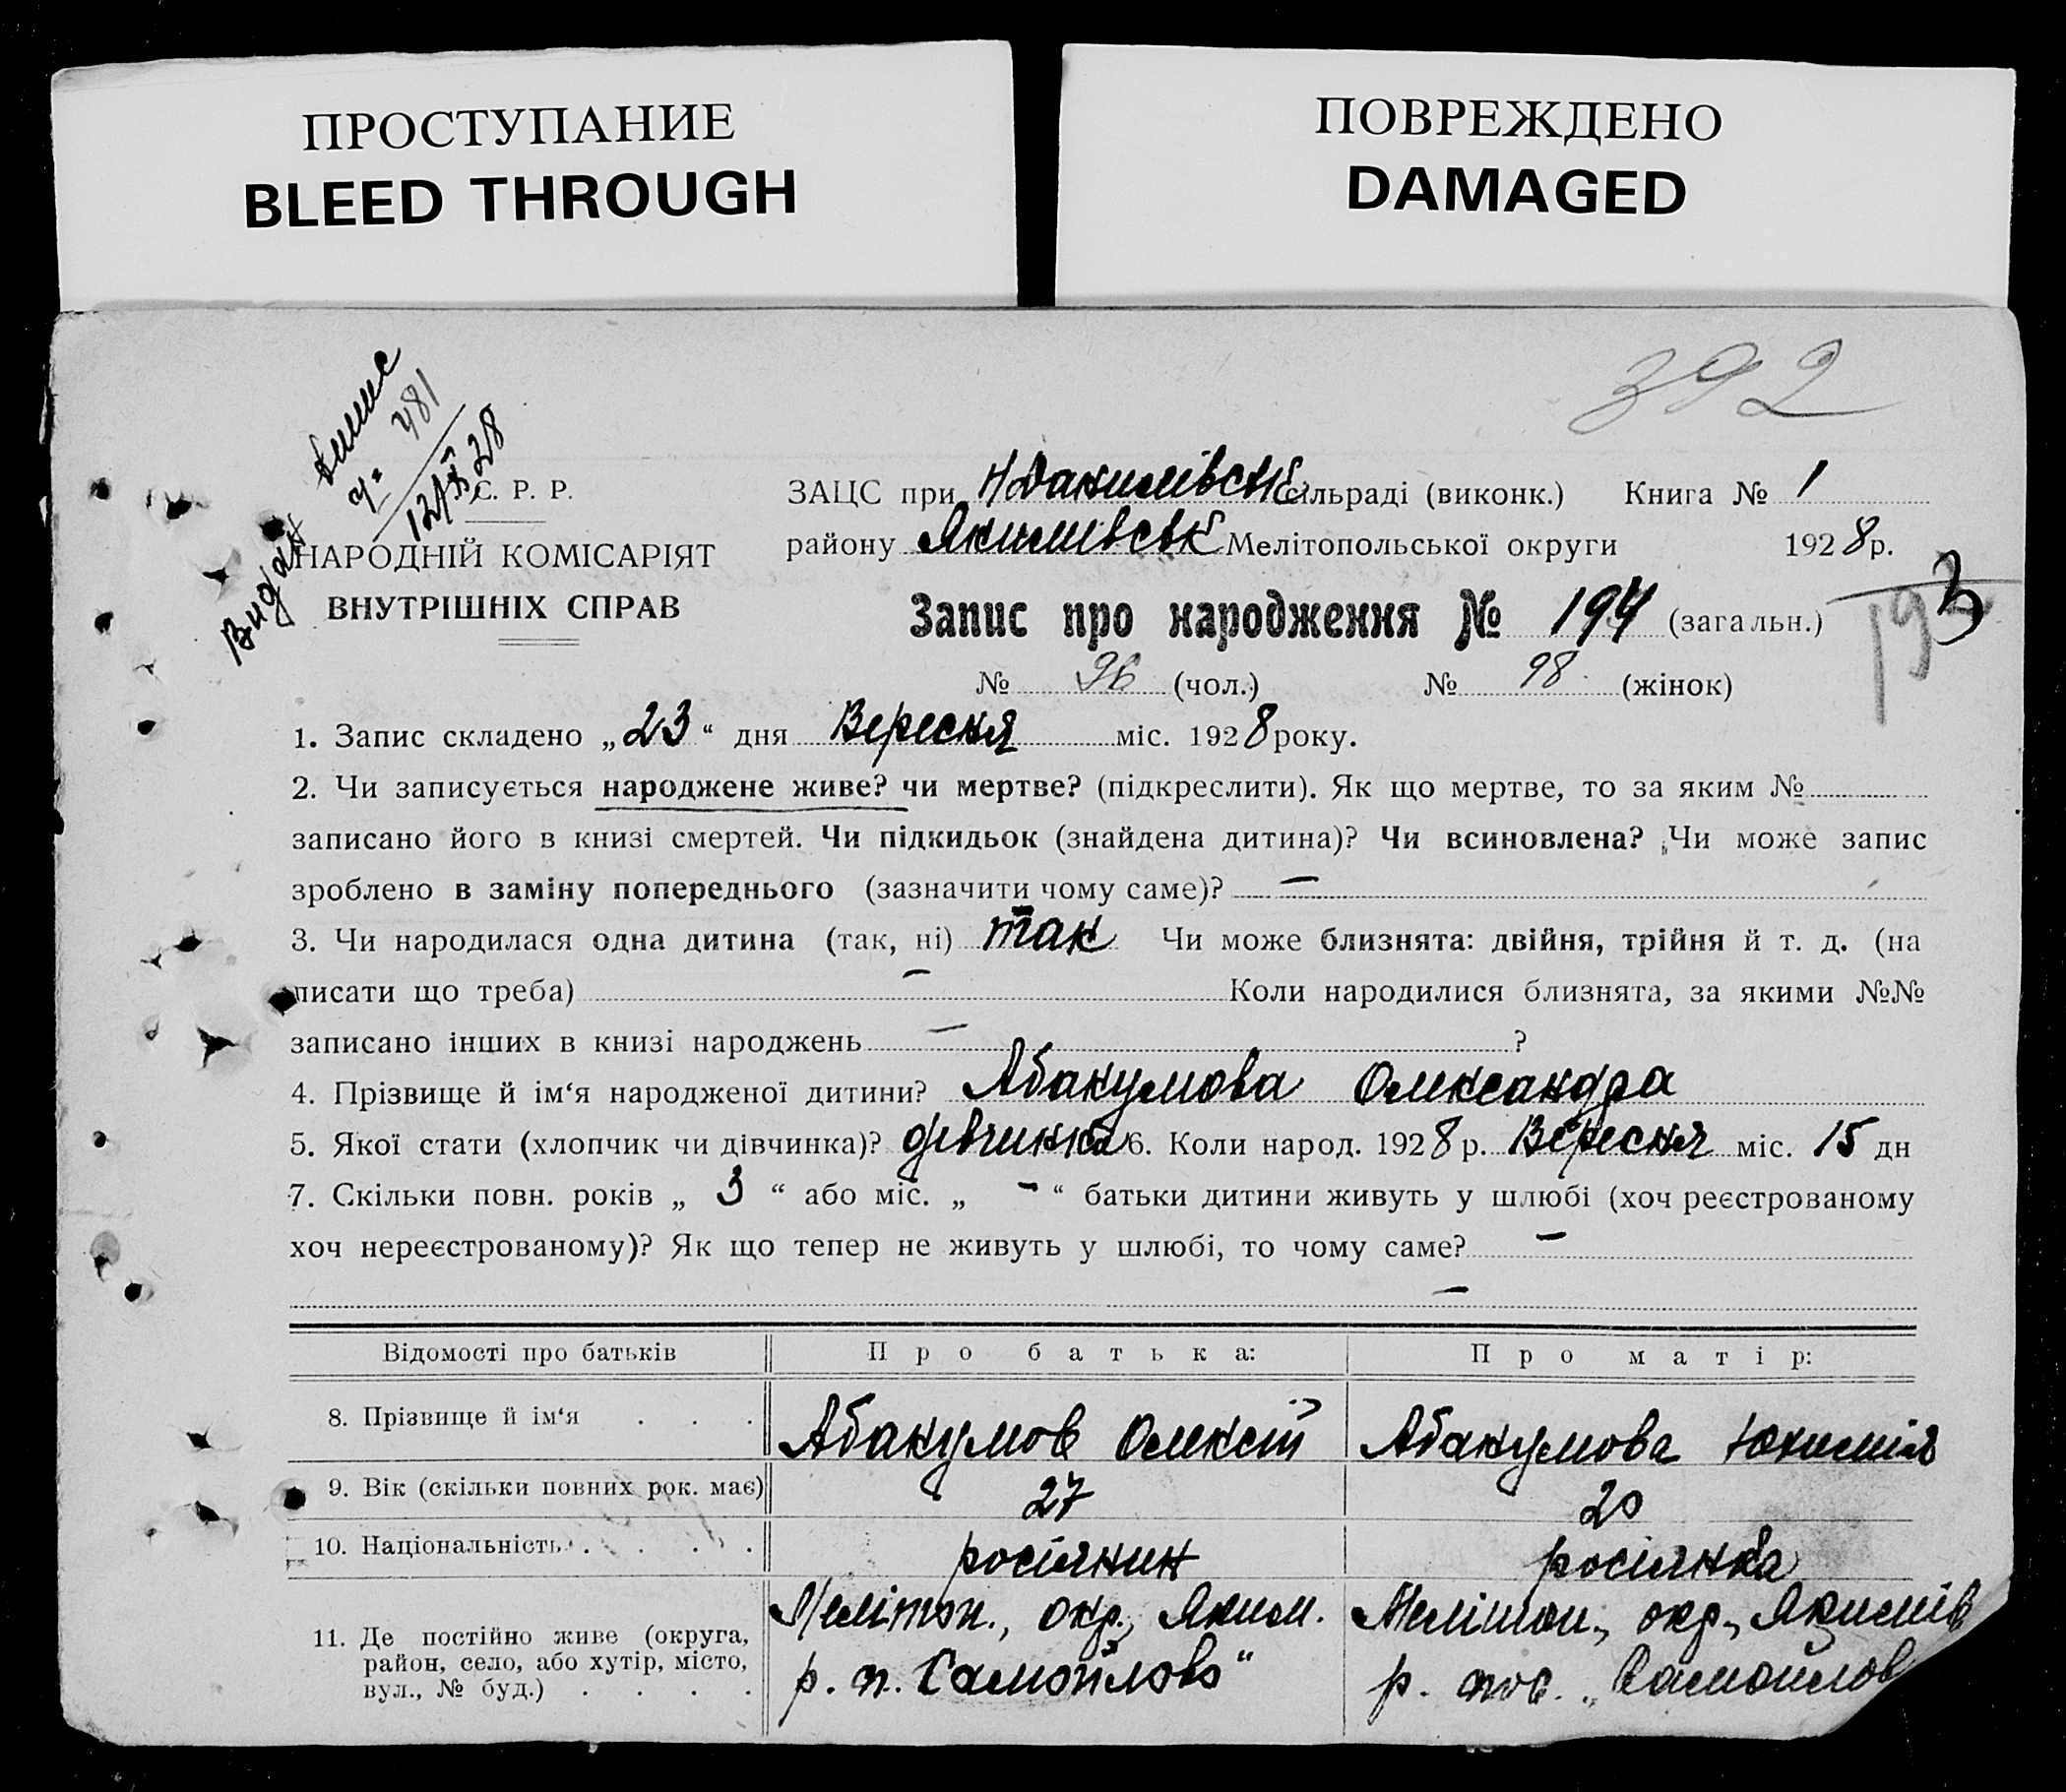 ПРОСТУПАНИЕ
BLEED THROUGH
ПОВРЕЖДЕНО
DAMAGED
392
Видан
ч: 481
12/X 28
С. Р. Р.
НАРОДНІЙ КОМІСАРІЯТ
ВНУТРІШНІХ СПРАВ
ЗАЦС при Н Данилівськ сільраді (виконк.) Книга № 1
району Якимівськ Мелітопольської округи 1928 р.
Запис про народження № 194 (загальн.)
193
№ 96 (чол.) № 98 (жінок)
1. Запис складено „23“ дня Вересня міс. 1928 року.
2. Чи записується народжене живе? чи мертве? (підкреслити). Як що мертве, то за яким №
записано його в книзі смертей. Чи підкидьок (знайдена дитина)? Чи всиновлена? Чи може запис
зроблено в заміну попереднього (зазначити чому саме)? —
3. Чи народилася одна дитина (так, ні) так Чи може близнята: двійня, трійня й т. д. (на
писати що треба) — Коли народилися близнята, за якими №№
записано інших в книзі народжень — ?
4. Прізвище й ім‘я народженої дитини? Абакумова Олександра
5. Якої стати (хлопчик чи дівчинка)? дівчинка 6. Коли народ. 1928 р. Вересня міс. 15 дн
7. Скільки повн. років „ 3 “ або міс. „ - “ батьки дитини живуть у шлюбі (хоч реєстрованому
хоч нереєстрованому)? Як що тепер не живуть у шлюбі, то чому саме? —
—
Відомості про батьків Про батька: Про матір:
8. Прізвище й ім‘я . . . Абакумов Олексій Абакумова Юхимія
9. Вік (скільки повних рок. має) 27 20
10. Національність . . . . росіянин росіянка
11. Де постійно живе (округа, район, село, або хутір, місто, вул., № буд.) . . . .
Мелітоп., окр., Яким.
р. п. Самойлово“
Мелітоп., окр., Якимів
р. пос. „Самойлов